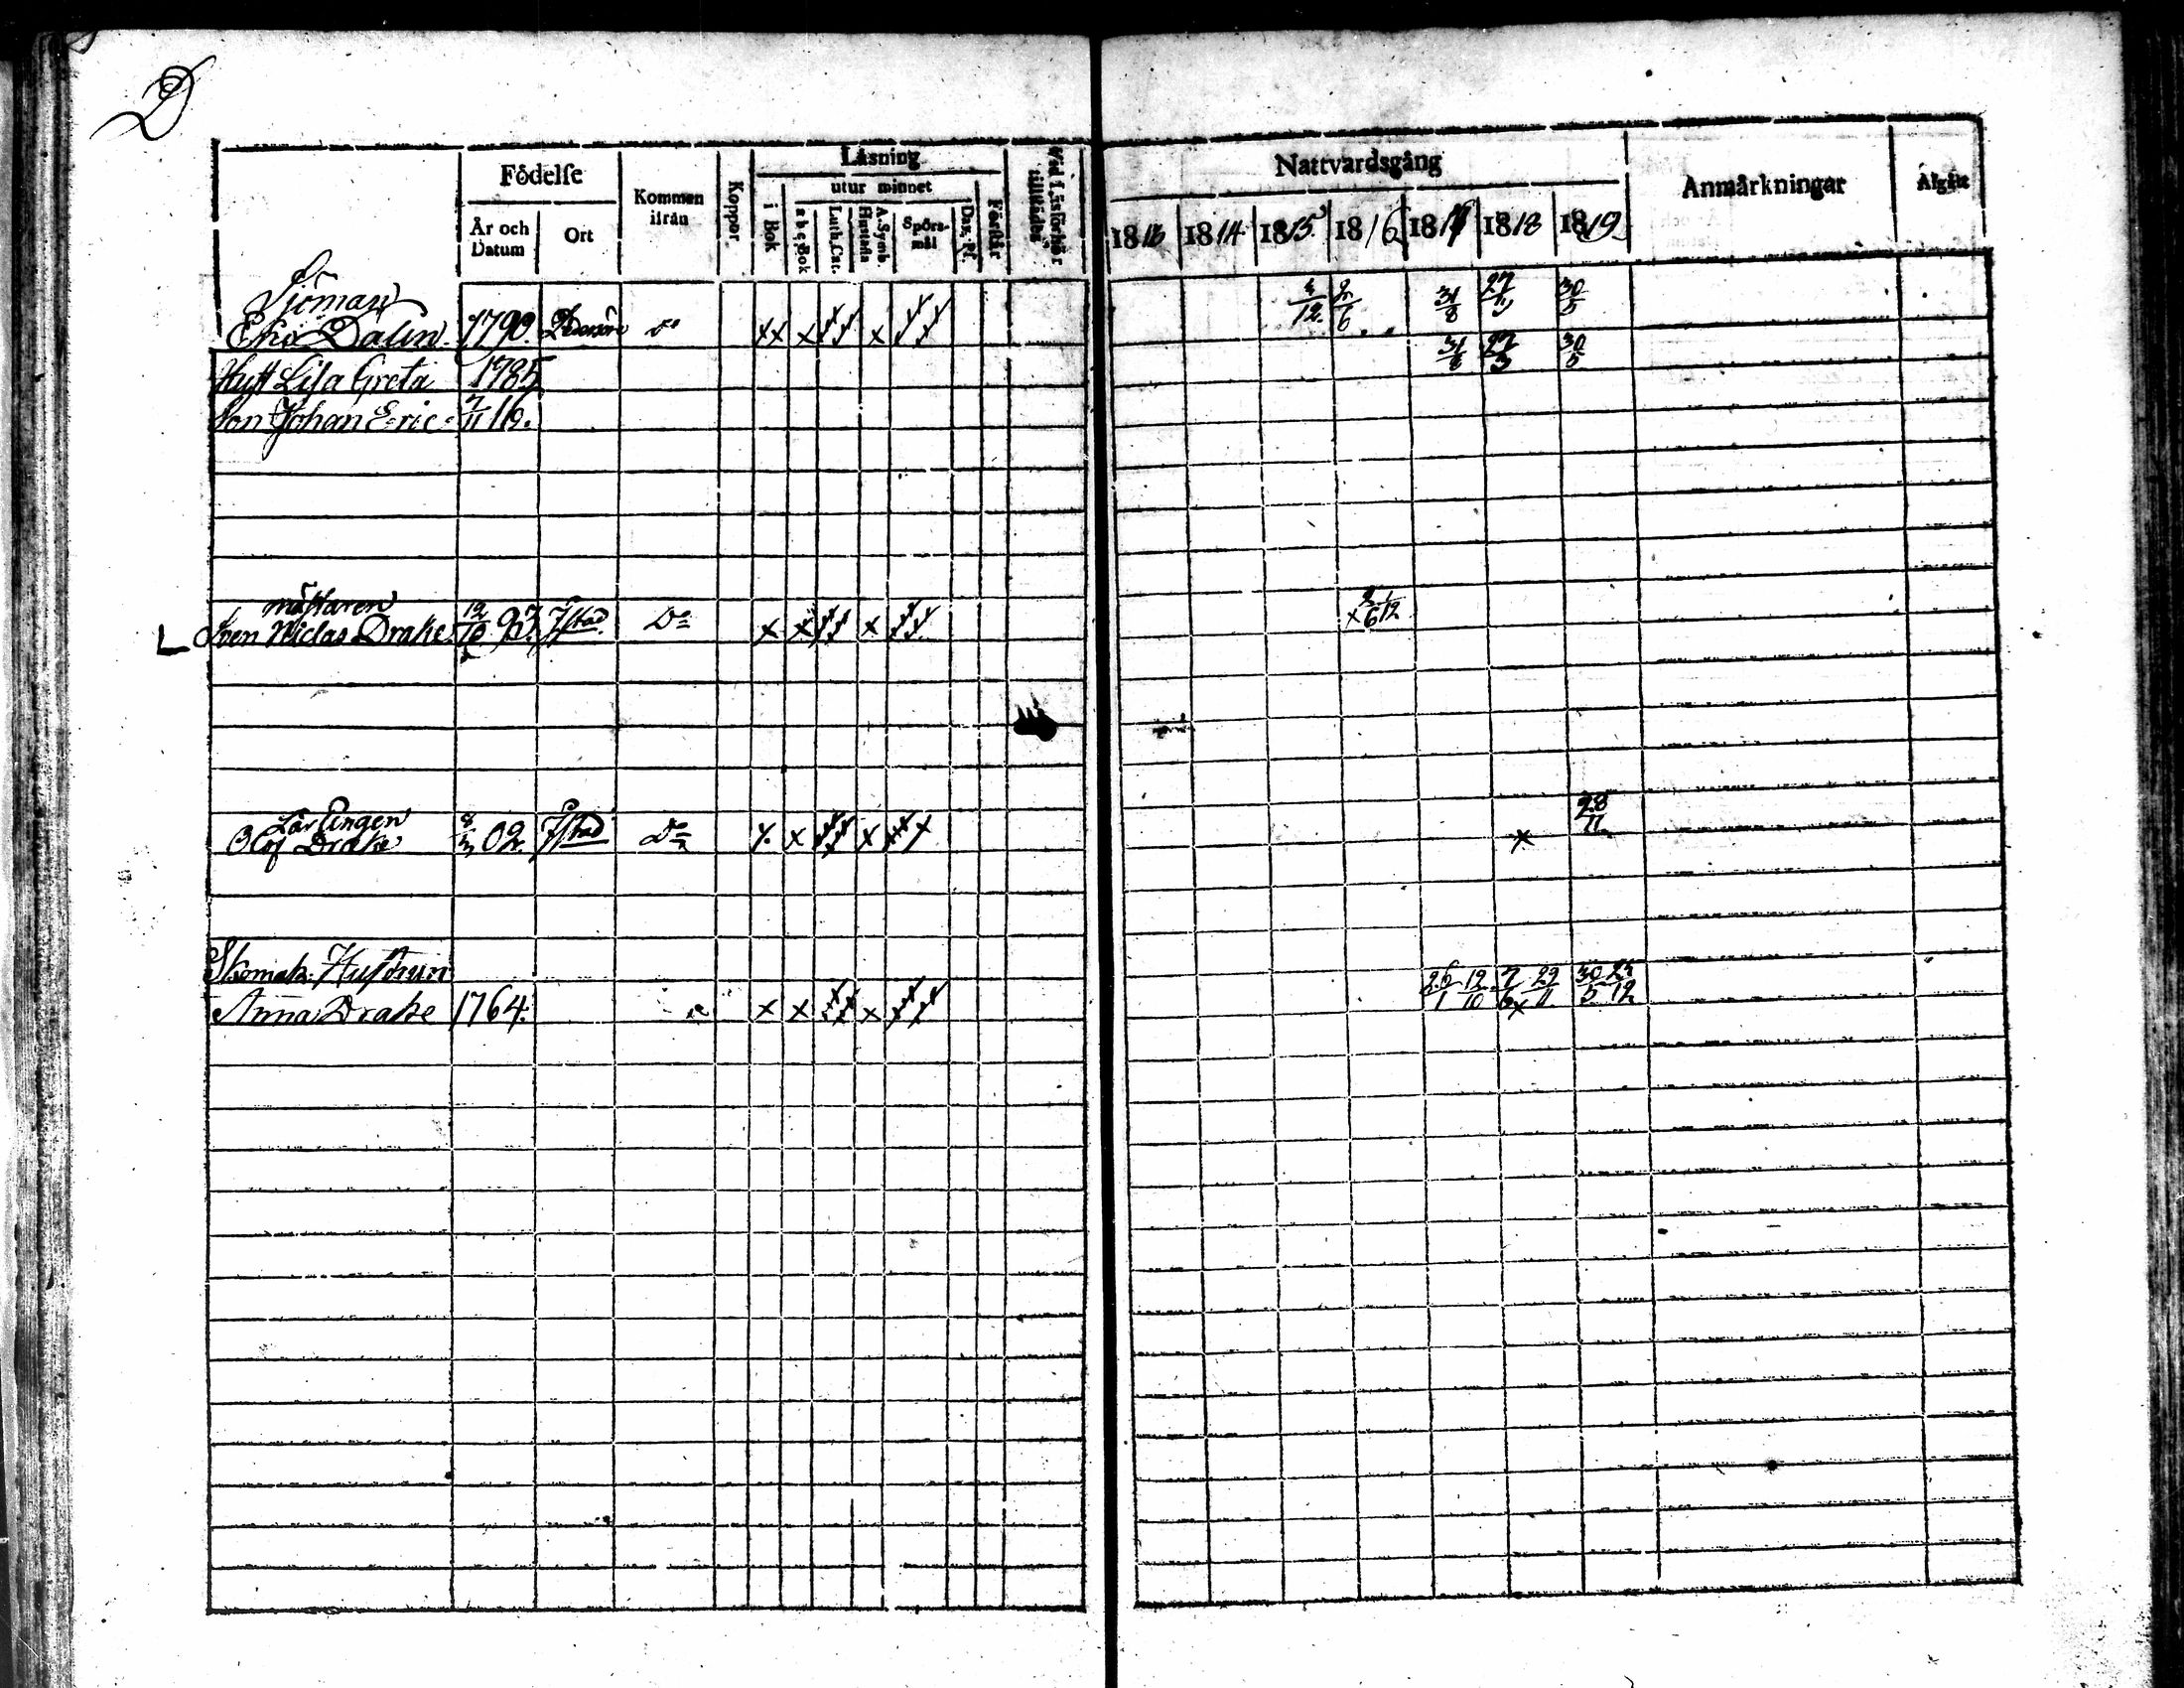 D
Födelse
År och Datum
Ort
Kommen ifrån
Koppor.
Läsning
i Bok
utur minnet
a b c Bok
Luth. Cat.
A. Symb.
Hustafla
Spörsmål
Dav. Ps.
Förstår
Vid Läsförhör
Nattvardsgång
1813 1814 1815 1816 1817 1818 1819
Anmärkningar
Afgått
Sjöman
Eric Dalin 1790. Do x x x x 4/12. 2/6 31/8 30/5
Hust Lisa Greta 1785 27/3 30/5
Son Johan Eric 7/11 16.
mästaren
Sven Niclas Drake 97. Ystad Do x x x x 6 12
Lärlingen
Olof Drake 02. Ystad Do x x x x 28/11
Skomak. Hustrun
Anna Drake 1764. x x x 26/1 12/10 7/6 x 29/11 30/5 25/12